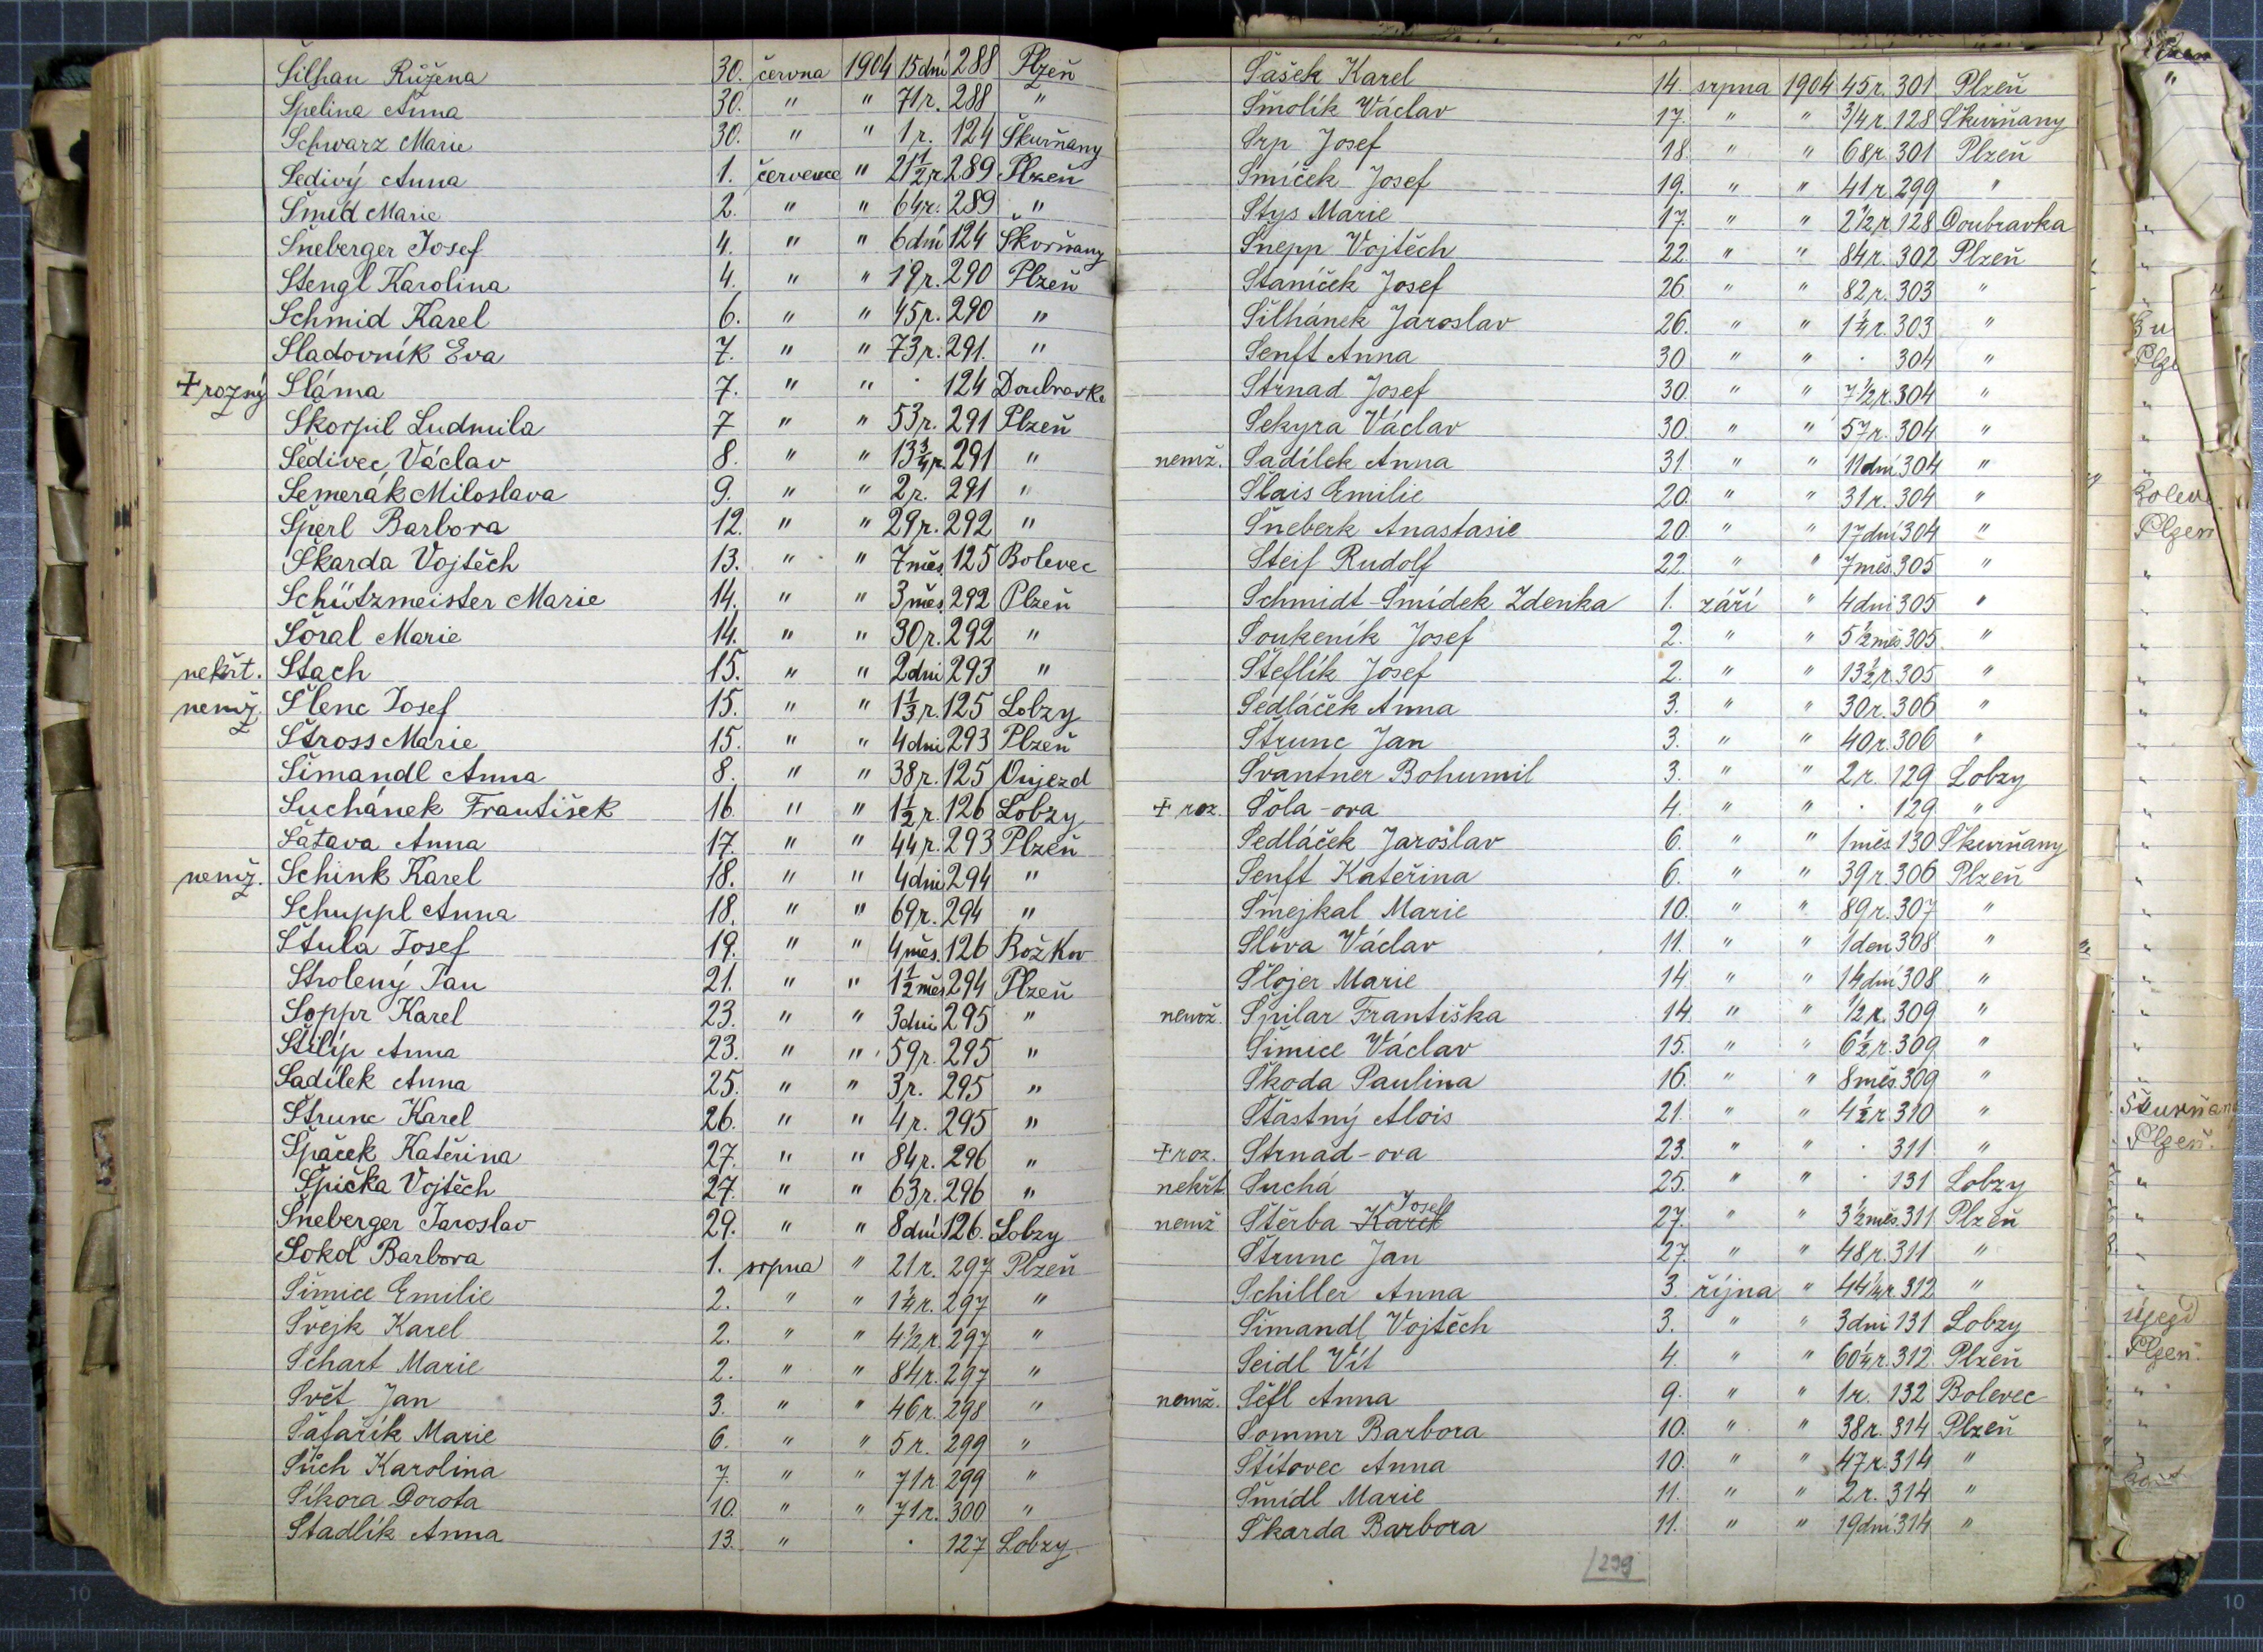 Šilhan Růžena 30. června 1904 15 dní 288 Plzeň
Spelina Anna 30. " " 71 r. 288 "
Schwarz Marie 30. " " 1 r. 124 Škurňany
Šedivý Anna 1. července " 21 1/2 r. 289 Plzeň
Šmíd Marie 2. " " 64 r. 289 "
Šneberger Josef 4. " " 6 dní 124 Skvrňany
Stengl Karolina 4. " " 19 r. 290 Plzeň
Schmid Karel 6. " " 45 r. 290 "
Sladovník Eva 7. " " 73 r. 291. "
+ rozný Sláma 7. " " · 124 Doubravka
Škorpil Ludmila 7 " " 53 r. 291 Plzeň
Šedivec Václav 8. " " 13 3/4 r. 291 "
Semerák Miloslava 9. " " 2 r. 291 "
Šperl Barbora 12. " " 29 r. 292 "
Škarda Vojtěch 13. " " 7 měs. 125 Bolevec
Schützmeister Marie 14. " " 3 měs. 292 Plzeň
Šoral Marie 14. " " 30 r. 292 "
nekřt. Stach 15. " " 2 dni 293 "
nemž. Šlenc Josef 15. " " 1 1/3 r. 125 Lobzy
Stross Marie 15. " " 4 dni 293 Plzeň
Šimandl Anna 8. " " 38 r. 125 Oujezd
Suchánek František 16 " " 1 1/2 r. 126 Lobzy
Šatava Anna 17. " " 44 r. 293 Plzeň
nemž. Schink Karel 18. " " 4 dni 294 "
Schuppl Anna 18. " " 69 r. 294 "
Štula Josef 19. " " 4 měs. 126 Božkov
Stolený Jan 21. " " 1 1/2 měs 294 Plzeň
Soppr Karel 23. " " 3 dni 295 "
Štilip Anna 23. " " 59 r. 295 "
Sadílek Anna 25. " " 3 r. 295 "
Štrunc Karel 26. " " 4 r. 295 "
Špaček Kateřina 27. " " 84 r. 296 "
Špička Vojtěch 27. " " 63 r. 296 "
Šneberger Jaroslav 29. " " 8 dní 126. Lobzy
Sokol Barbora 1. srpna " 21 r. 297 Plzeň
Šimice Emilie 2. " " 1 1/4 r. 297 "
Švejk Karel 2. " " 4 1/2 r. 297 "
Schart Marie 2. " " 84 r. 297 "
Svět Jan 3. " " 46 r. 298 "
Šafařík Marie 6. " " 5 r. 299 "
Šůch Karolina 7. " " 71 r. 299 "
Síkora Dorota 10. " " 71 r. 300 "
Stadlík Anna 13. " · 127 Lobzy
Šašek Karel 14. srpna 1904 45 r. 301 Plzeň
Smolík Václav 17. " " 3/4 r. 128 Škurňany
Srp Josef 18. " " 68 r. 301 Plzeň
Šmíček Josef 19. " " 41 r. 299 "
Stys Marie 17. " " 2 1/2 r. 128 Doubravka
Šnepp Vojtěch 22. " " 84 r. 302 Plzeň
Staníček Josef 26 " " 82 r. 303 "
Šilhánek Jaroslav 26. " " 1 1/4 r. 303 "
Senft Anna 30 " " · 304 "
Strnad Josef 30. " " 7 1/2 r. 304 "
Sekyra Václav 30. " " 57 r. 304 "
nemž. Sadílek Anna 31 " " 11 dní 304 "
Šlais Emilie 20. " " 31 r. 304 "
Šneberk Anastasie 20. " " 17 dní 304 "
Steif Rudolf 22. " " 7 měs. 305 "
Schmidt-Šmídek Zdenka 1. září " 4 dni 305 "
Soukeník Josef 2. " " 5 1/2 měs. 305 "
Šteflík Josef 2. " " 13 1/2 r. 305 "
Sedláček Anna 3. " " 30 r. 306 "
Štrunc Jan 3. " " 40 r. 306 "
Švantner Bohumil 3. " " 2 r. 129 Lobzy
+ roz. Šola-ova 4. " " · 129 "
Sedláček Jaroslav 6. " " 1 měs 130 Škurňany
Senft Kateřina 6. " " 39 r. 306 Plzeň
Šmejkal Marie 10. " " 89 r. 307 "
Slíva Václav 11. " " 1 den 308 "
Šlojer Marie 14 " " 14 dní 308 "
nemž. Špilar Františka 14 " " 1/2 r. 309 "
Šimice Václav 15. " " 6 1/2 r. 309 "
Škoda Paulina 16. " " 8 měs. 309 "
Šťastný Alois 21. " " 4 1/2 r. 310 "
+ roz. Strnad-ova 23. " " · 311 "
nekřt Suchá 25. " " · 131 Lobzy
nemž Štěrba Karel Josef 27. " " 3 1/2 měs. 311 Plzeň
Štrunc Jan 27. " " 48 r. 311 "
Schiller Anna 3. října " 44 1/4 r. 312 "
Šimandl Vojtěch 3. " " 3 dni 131 Lobzy
Seidl Vít 4. " " 60 1/4 r. 312 Plzeň
nemž. Šefl Anna 9. " " 1 r. 132 Bolevec
Sommr Barbora 10. " " 38 r. 314 Plzeň
Štítovec Anna 10. " " 47 r. 314 "
Šmídl Marie 11. " " 2 r. 314 "
Škarda Barbora 11. " " 19 dní 314 "
299
Plzeň
Škurňany
Plzeň.
Újezd
Plzeň.
10
10